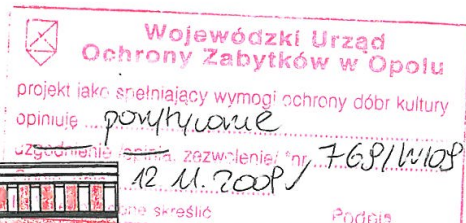 Wojewódzki Urząd
Ochrony Zabytków w Opolu
projekt jako spełniający wymogi ochrony dóbr kultury
opiniuję pozytywnie
uzgodnienie /opinia, zezwolenie/ nr 769/W/09
12 11. 2009
skreślić Podpis